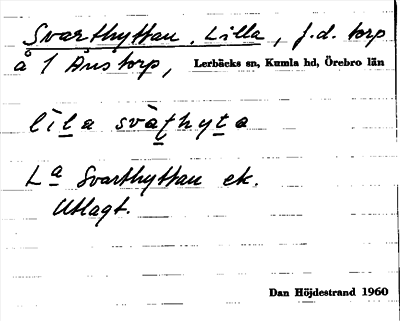 Svarthyttan, Lilla, f.d. torp
å 1 Ånstorp, Lerbäcks sn, Kumla hd, Örebro län
lìla svàṭhyṭa
La Svarthyttan ek.
Utlagt.
Dan Höjdestrand 1960